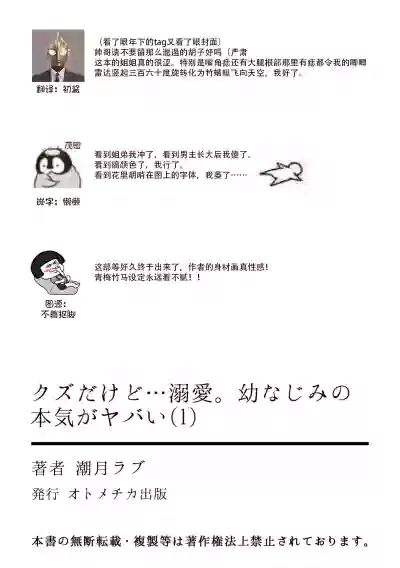 （看了眼年下的tag又看了眼封面）
帅哥请不要留那么邋遢的胡子好吗（严肃
这本的姐姐真的很涩。特别是嘴角痣还有大腿根部那里有痣都令我的唧唧
雷达竖起三百六十度旋转化为竹蜻蜓飞向天空，我好了。
翻译：初鲨
茂密
看到姐弟我冲了，看到男主长大后我傻了，
看到嫡颜色了，我行了，
看到花里胡哨在图上的字体，我萎了……
嵌字：懒懒
这部等好久终于出来了，作者的身材画真性感！
青梅竹马设定永远看不腻！！
图源：
不着捉脚
クズだけど…溺愛。幼なじみの
本気がヤバい(1)
著者 潮月ラブ
発行 オトメチカ出版
本書の無断転載・複製等は著作権法上禁止されております。